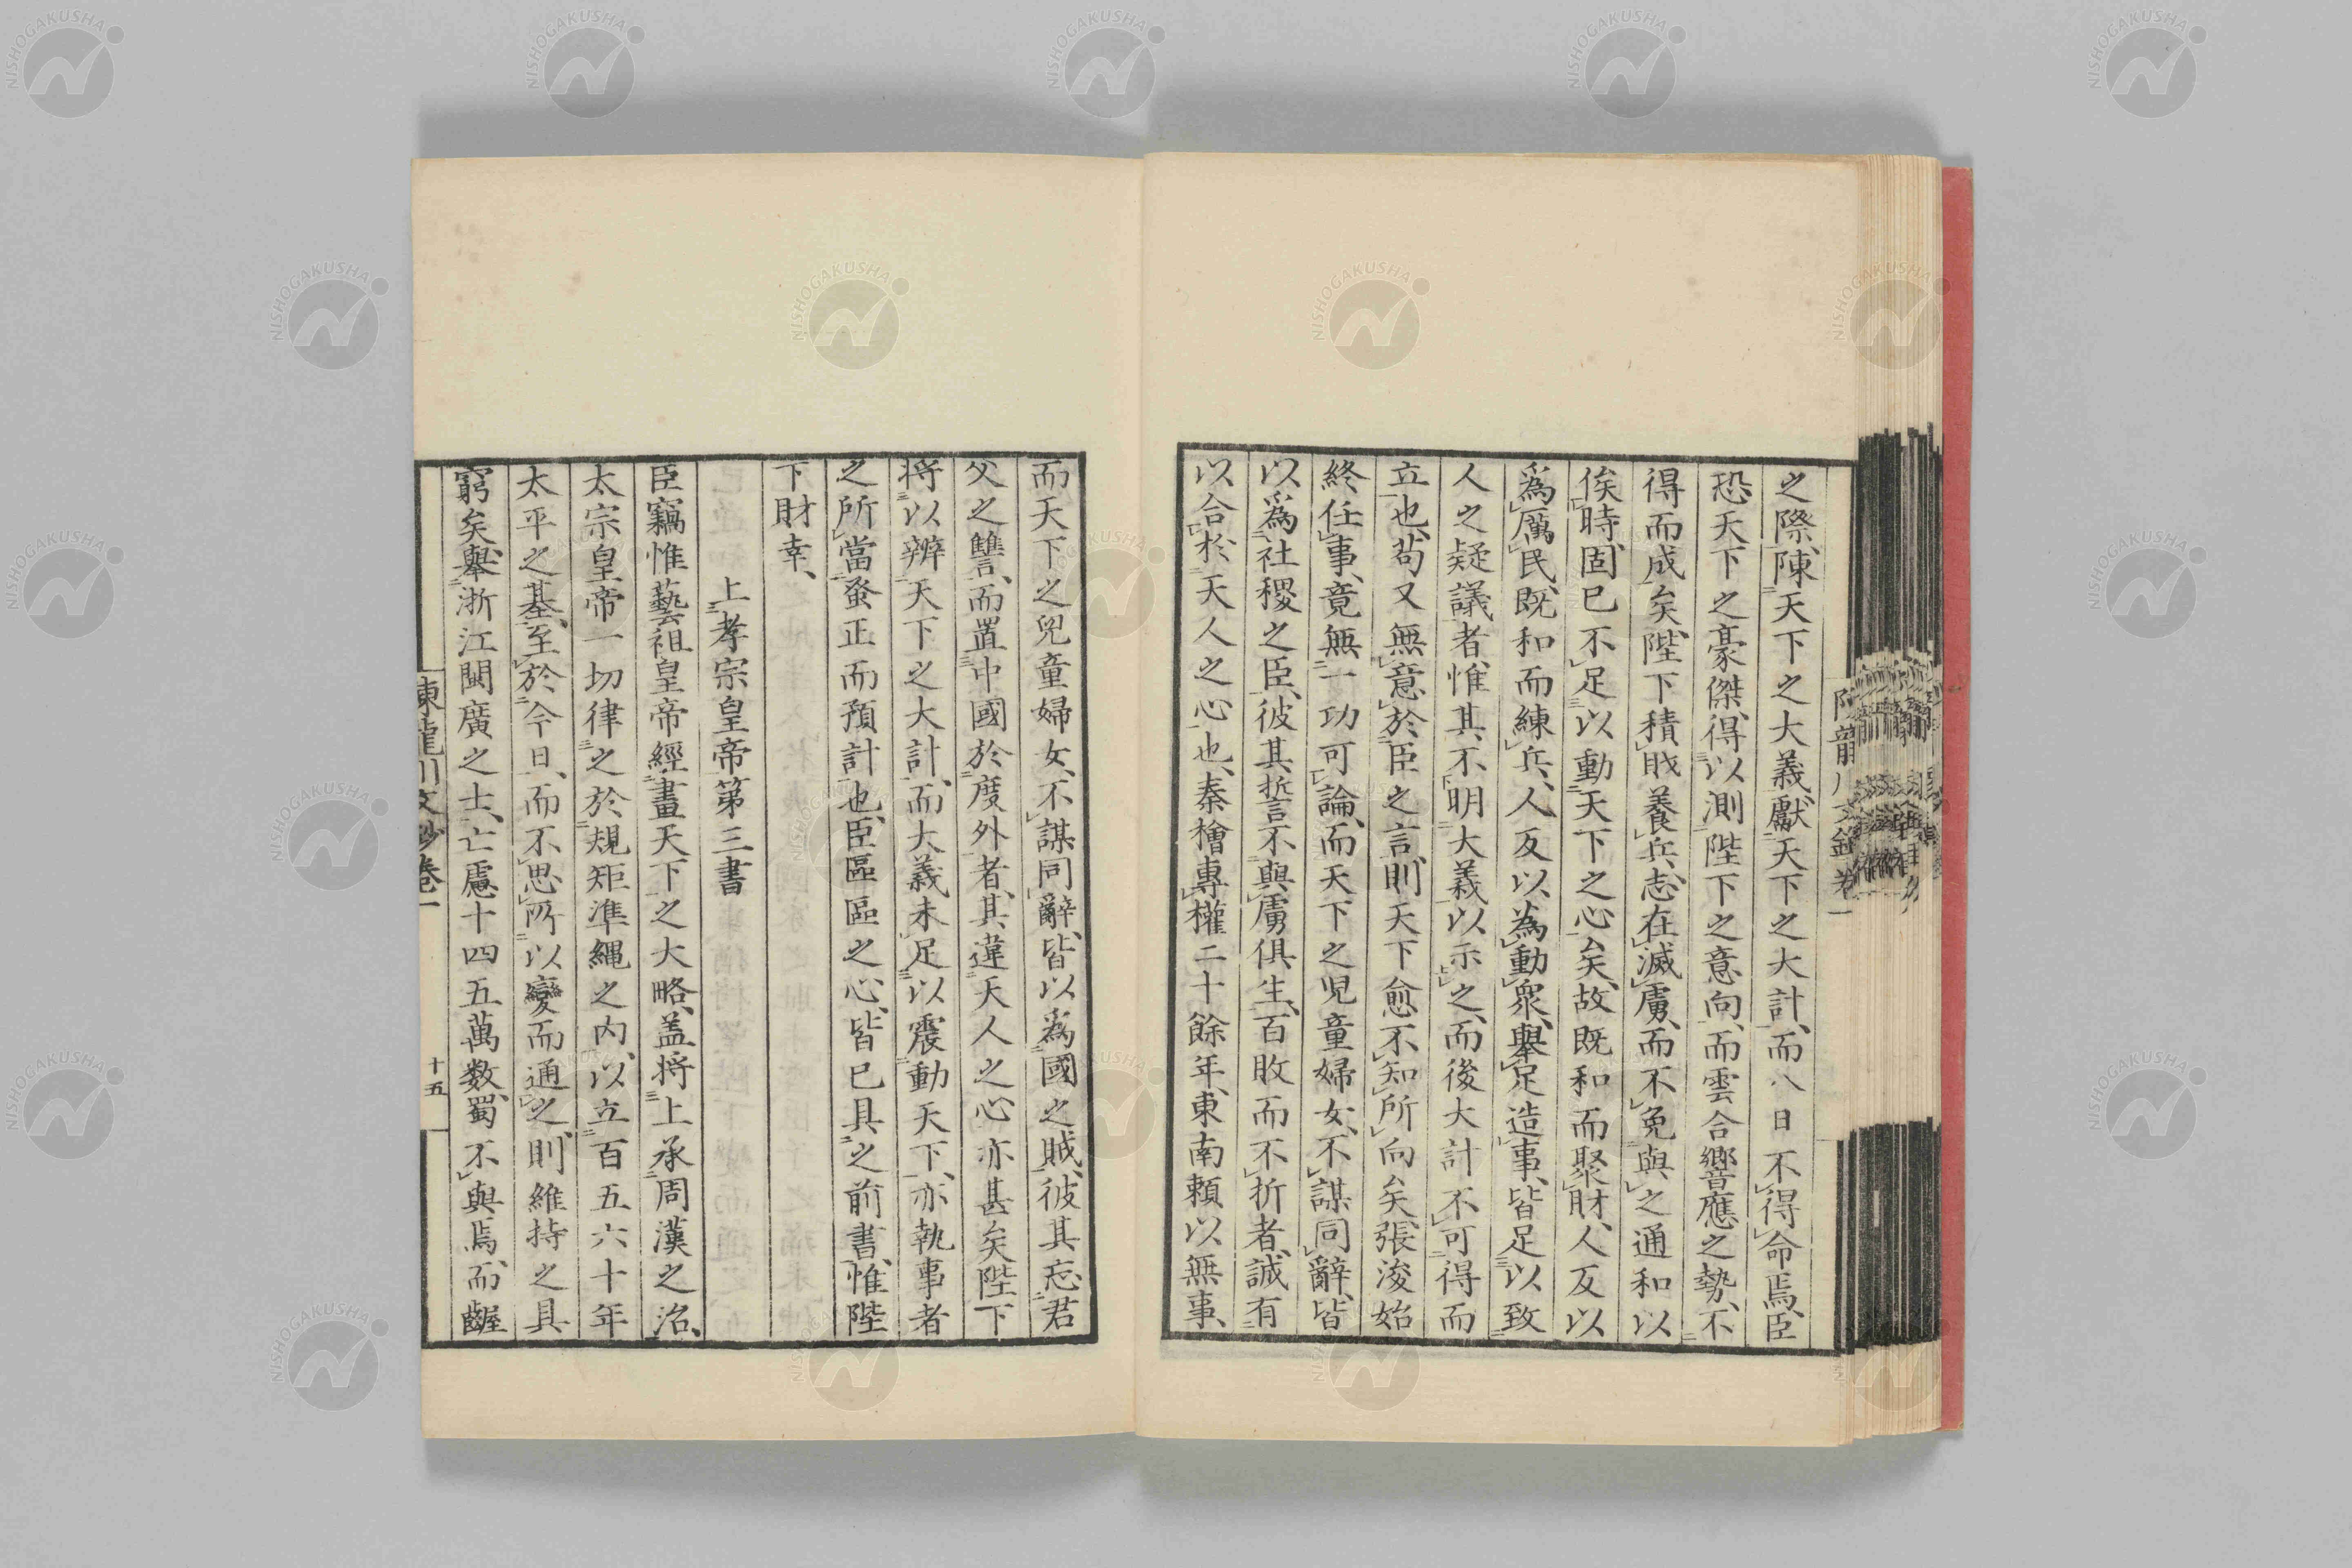 之際、陳天下之大義、獻天下之大計、而八日不得命焉、臣
恐天下之豪傑、得以測陛下之意向、而雲合響應之勢、不
得而成矣、陛下積財養兵、志在滅虜、而不免與之通和以
俟時、固已不足以動天下之心矣、故既和而聚財、人反以
爲厲民、既和而練兵、人反以爲動衆、舉足造事、皆足以致
人之疑議者、惟其不明大義以示之、而後大計不可得而
立也、苟又無意於臣之言、則天下愈不知所向矣、張浚始
終任事、竟無一功可論、而天下之児童婦女、不謀同辭、皆
以爲社稷之臣、彼其誓不與虜俱生、百敗而不折者、誠有
以合於天人之心也、秦檜專權二十餘年、東南賴以無事、
而天下之兒童婦女、不謀同辭、皆以爲國之賊、彼其忘君
父之讐、而置中國於度外者、其違天人之心亦甚矣、陛下
將以辨天下之大計、而大義未足以震動天下、亦執事者
之所當蚤正而預計也、臣區區之心、皆已具之前書、惟陛
下財幸、
上孝宗皇帝第三書
臣竊惟藝祖皇帝經畫天下之大略、盖將上承周漢之治、
太宗皇帝一切律之於規矩準繩之内、以立百五六十年
太平之基、至於今日、而不思所以變而通之、則維持之具
窮矣、舉浙江閩廣之士、亡慮十四五萬数、蜀不與焉、而齷
陳龍川文鈔卷一
十五
NISHOGAKUSHA